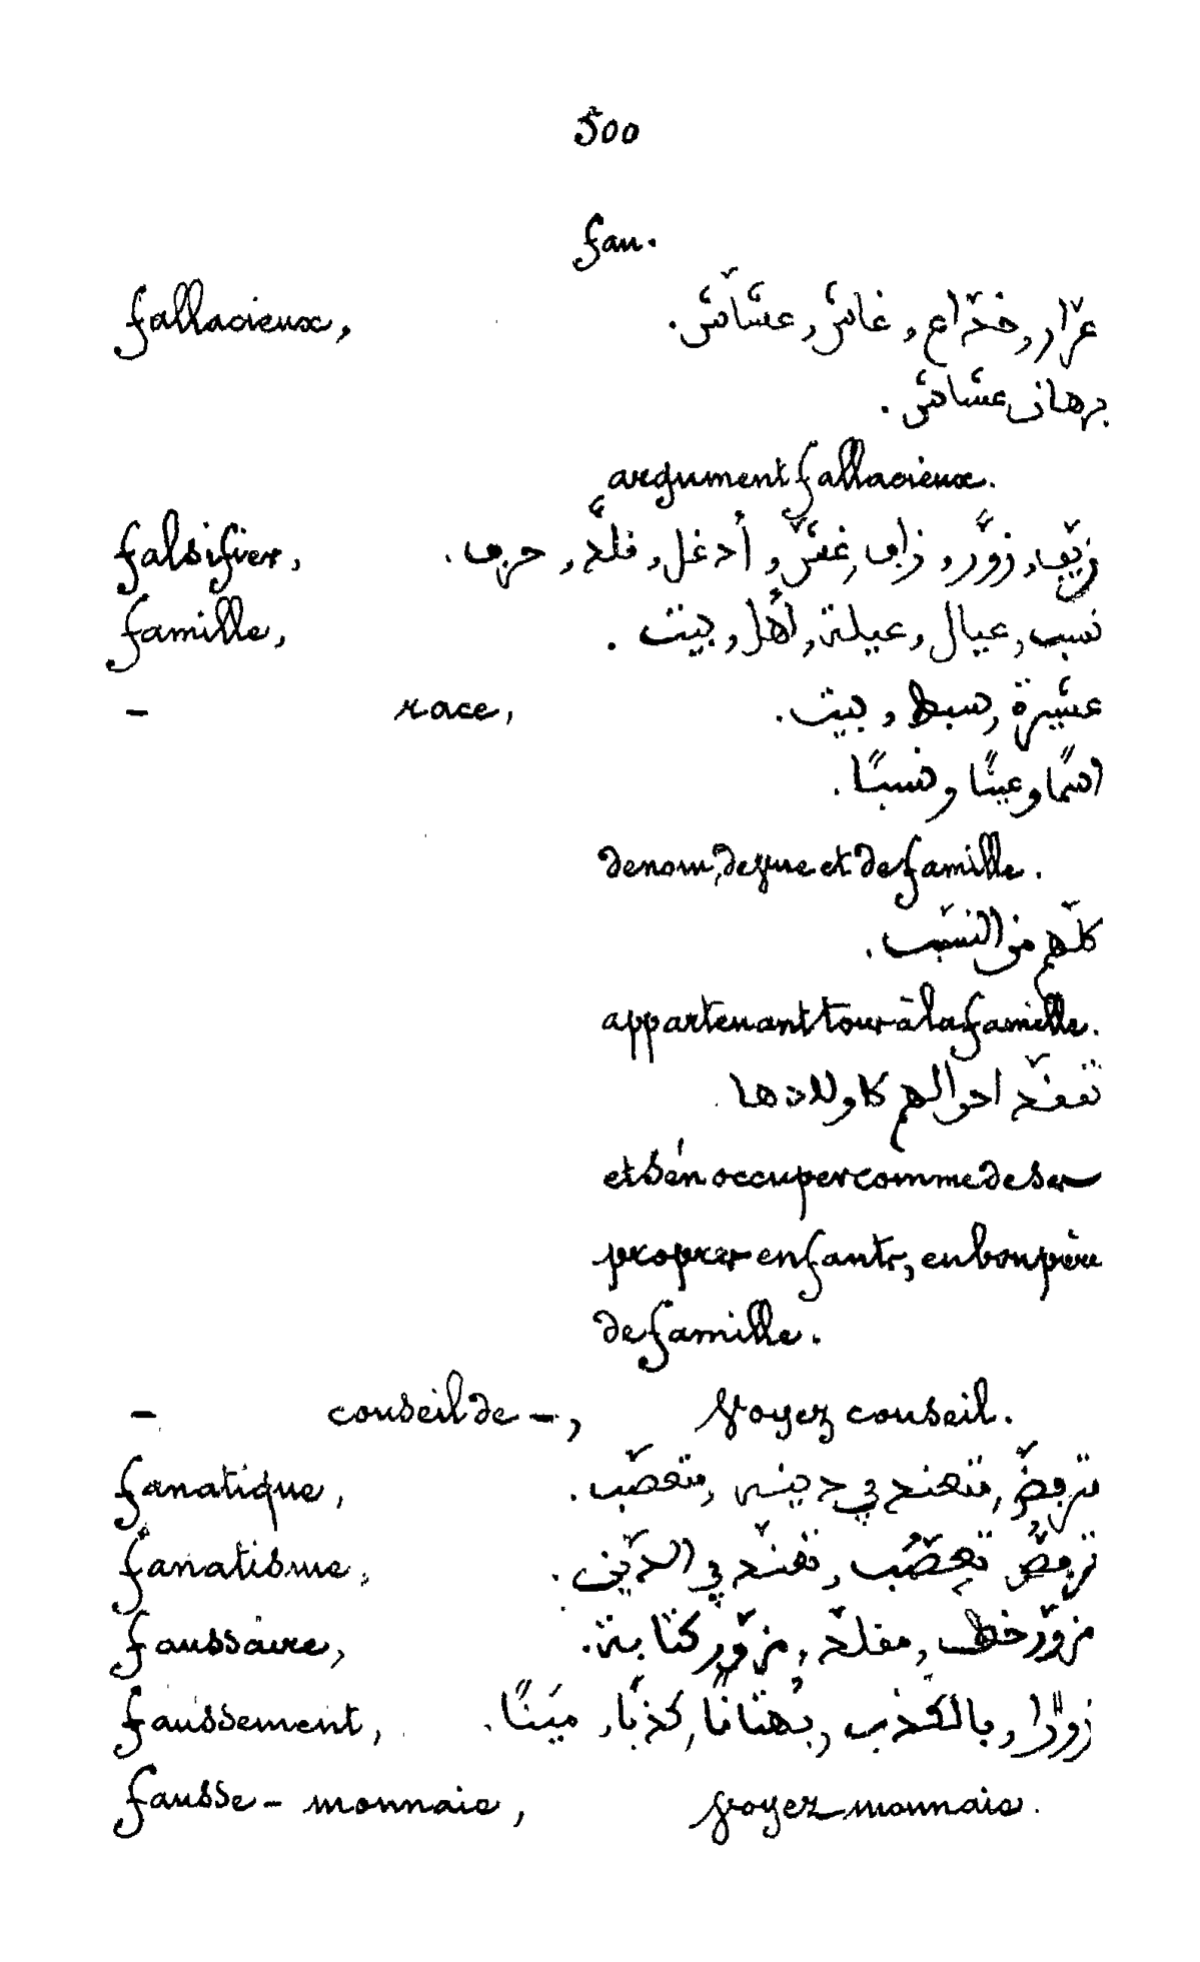 500
fan.
fallacieux, غرّار, خدّاع, غاش, غشّاش.
برهان غشاش.
argument fallacieux.
falsifier, زيّف, زوّر, زاف, غشّ, أدغل, قلّد, حرف.
famille, نسب, عيال, عيلة, أهل, بيت.
- race, عشيرة, سبط, بيت.
اسمًا وعينًا ونسبًا.
de nom, de vue et de famille.
كلّهم من النسب.
appartenant tous à la famille.
تفقّد احوالهم كاولادها
et s'en occuper comme de ses
propres enfants, en bon père
de famille.
- conseil de -, Voyez conseil.
fanatique, مترفّض, متعند في دينه, متعصّب.
fanatisme, ترفّض, تعصّب, تعنّد في الدين.
faussaire, مزوّر خط, مقلد, مزوّر كتابة.
faussement, زورًا, بالكذب, بهتانًا, كذبًا, مينًا.
fausse-monnaie, Voyez monnaie.